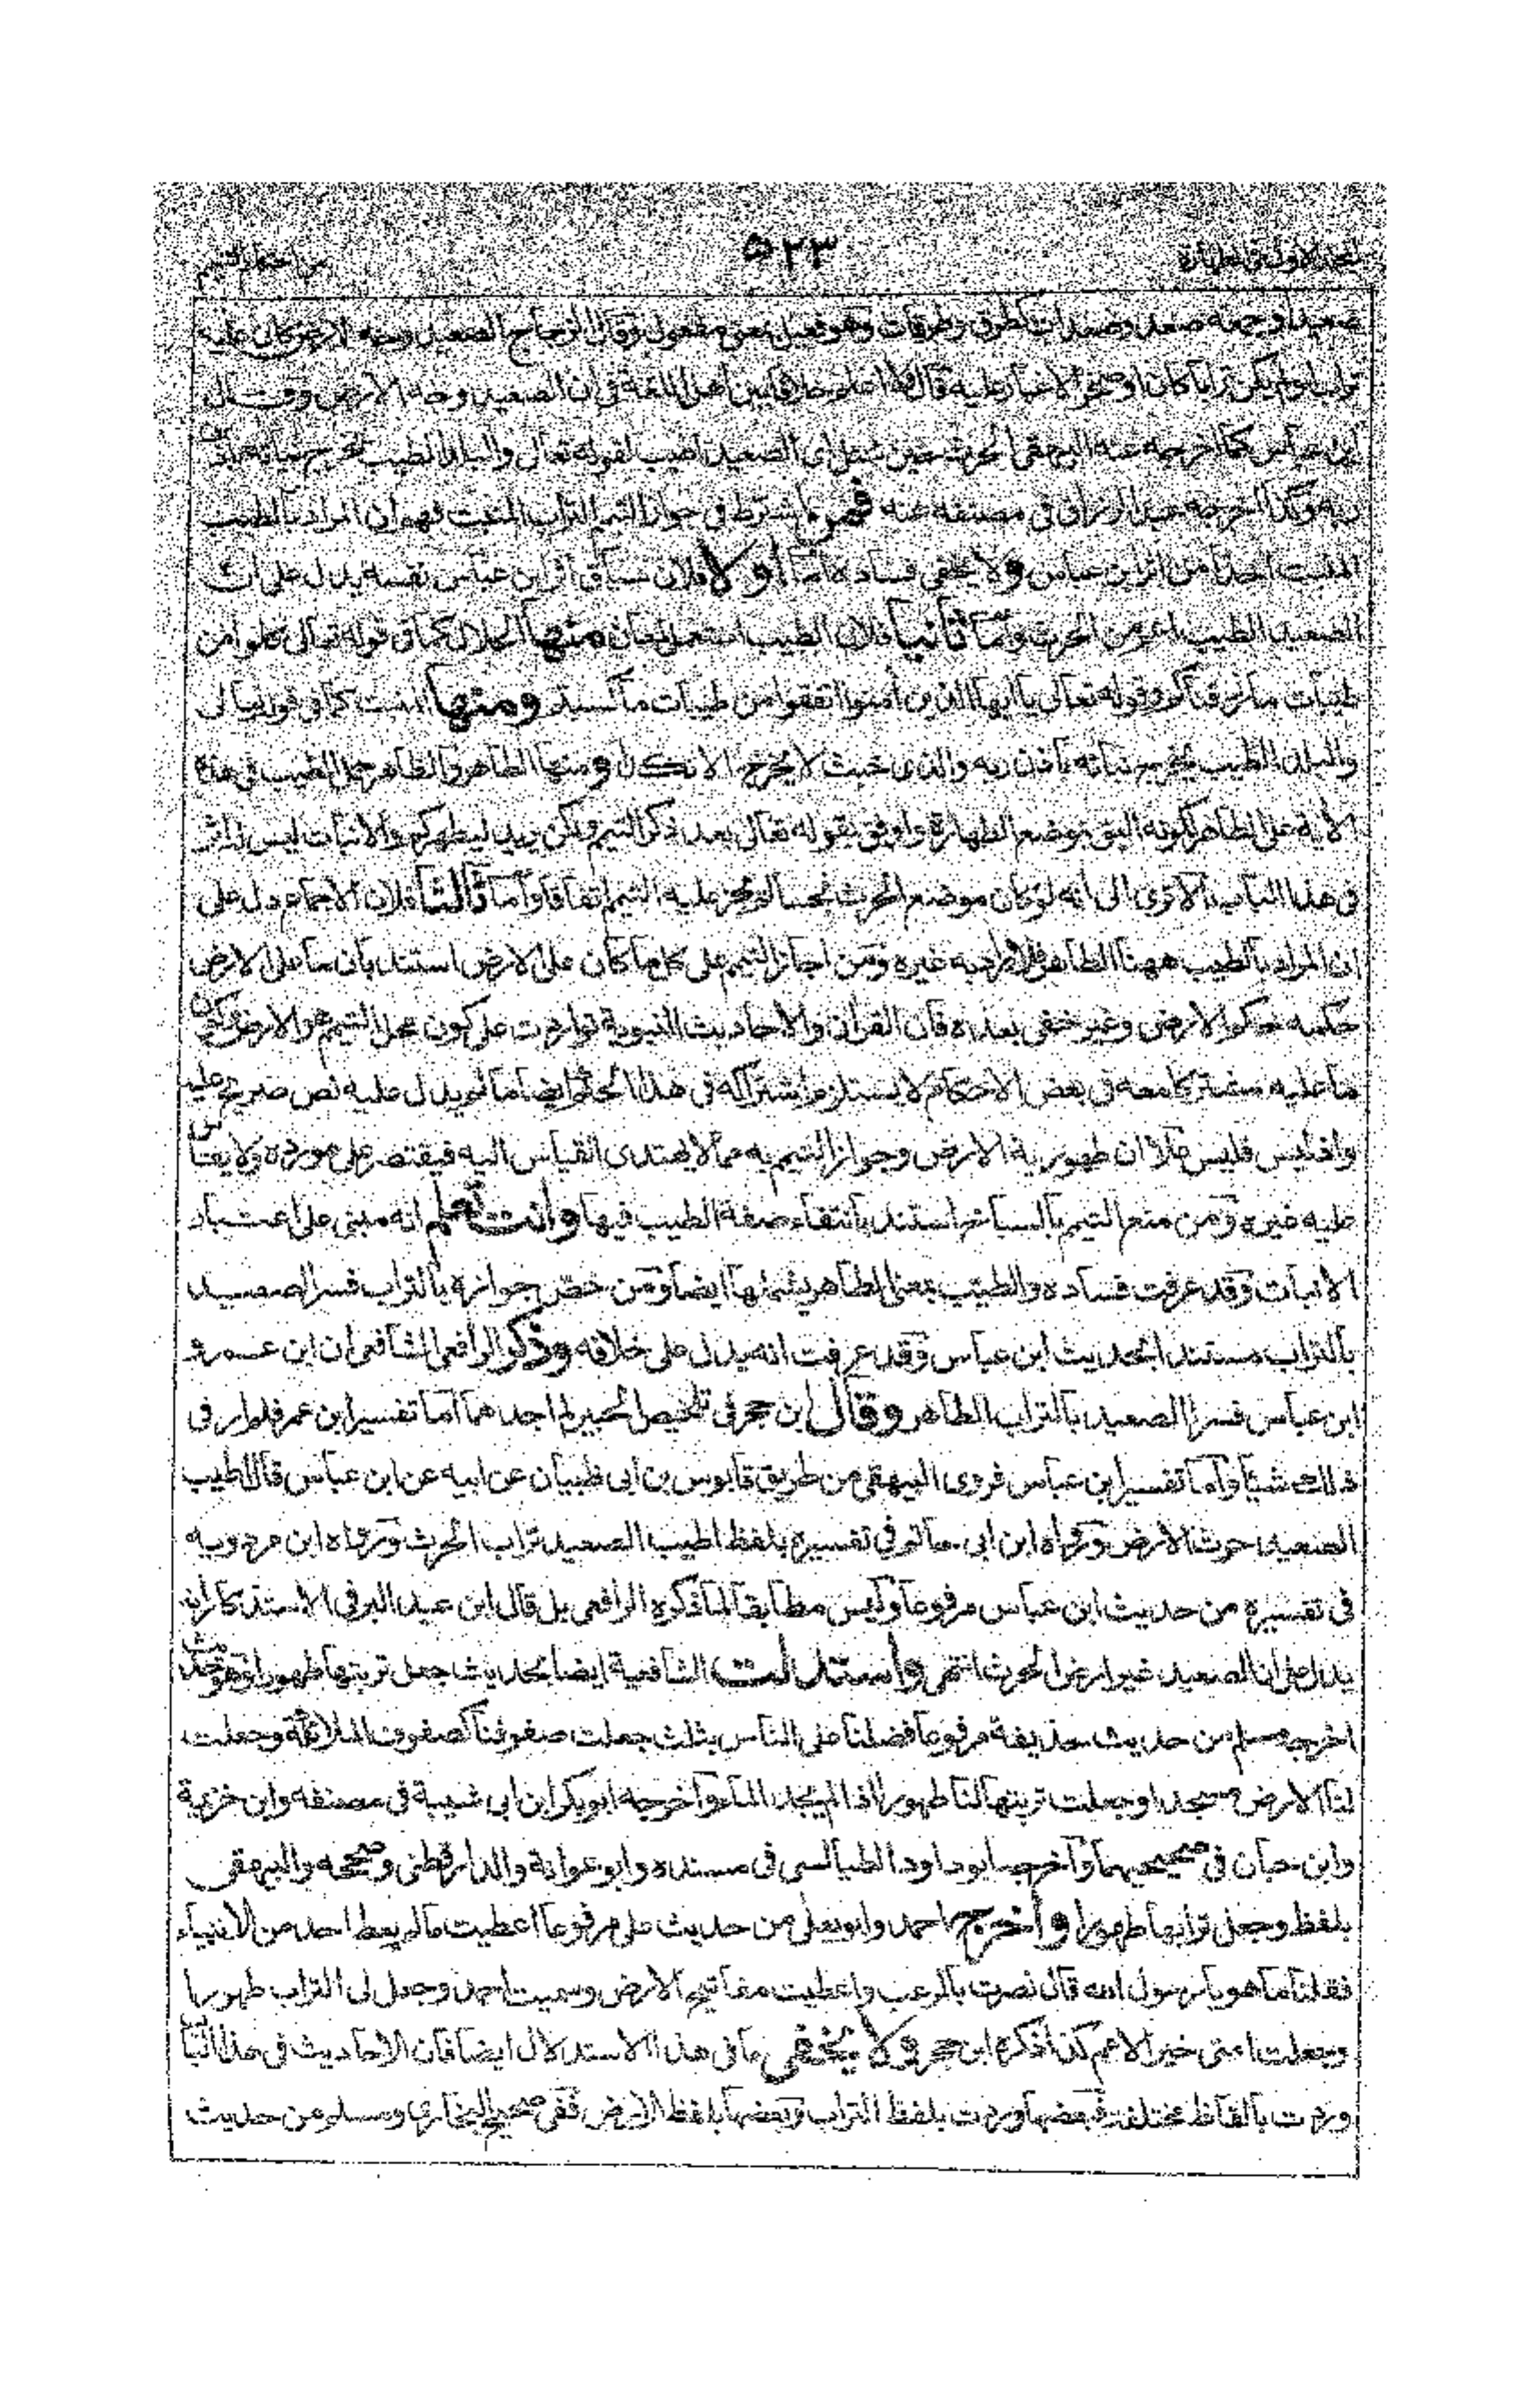 ٥٢٣
صعيدا وجمعه صعد وصعدات كطرق وطرقات وهو فعيل بمعنى مفعول وقال الزجاج الصعيد وجه الارض كان عليه
تراب اولم يكن ترابا كان او صخرا لاغبار عليه قال ولا اعلم خلافا بين اهل اللغة فى ان الصعيد وجه الارض وقال
ابن عباس كما اخرجه عنه البيهقى الحرث حين سئل اى الصعيد اطيب لقوله تعالى والبلد الطيب يخرج نباته باذن
ربه وكذا اخرجه عبد الرزاق فى مصنفه عنه فمن اشترط فى جواز التيمم التراب المنبت فهم ان المراد بالطيب
المنبت اخذا من اثر ابن عباس ولا يخفى فساده اما اولا فلان سياق اثر ابن عباس نفسه يدل على ان
الصعيد الطيب اعم من الحرث واما ثانيا فلان الطيب استعمل لمعان منها الحلال كما فى قوله تعالى كلوا من
طيبات ما رزقناكم وقوله تعالى يا ايها الذين امنوا انفقوا من طيبات ما كسبتم ومنها المنبت كما فى قوله تعالى
والبلد الطيب يخرج نباته باذن ربه والذى خبث لا يخرج الا نكدا ومنها الطاهر والظاهر حمل الطيب فى هذه
الآية على الطاهر لكونه اليق بموضع الطهارة واوفق بقوله تعالى بعد ذكر التيمم ولكن يريد ليطهركم والانبات ليس له اثر
فى هذا الباب الا ترى الى انه لو كان موضع الحرث نجسا لم يجز عليه التيمم اتفاقا واما ثالثا فلان الاجماع دل على
ان المراد بالطيب ههنا الطاهر فلا يراد به غيره ومن اجاز التيمم على كل ما كان على الارض استند بان ما على الارض
حكمه حكم الارض وغير خفى بعده فان القرآن والاحاديث النبوية تواردت على كون محل التيمم هو الارض وكون
ما عليه مشتركا معه فى بعض الاحكام لا يستلزم اشتراكه فى هذا الحكم ايضا ما لم يدل عليه نص صريح عليه
واذ ليس فليس علا ان طهورية الارض وجواز التيمم به مما لا يهتدى القياس اليه فيقتصر على مورده ولا يقاس
عليه غيره ومن منع التيمم بالسباخ استند بانتفاء صفة الطيب فيها وانت تعلم انه مبنى على اعتبار
الانبات وقد عرفت فساده والطيب بمعنى الطاهر يشملها ايضا ومن خص جوازه بالتراب فسر الصعيد
بالتراب مستندا بحديث ابن عباس وقد عرفت انه يدل على خلافه وذكر الرافعى الشافعى ان ابن عمر و
ابن عباس فسرا الصعيد بالتراب الطاهر وقال ابن حجر فى تلخيص الحبير لم اجد هما اما تفسير ابن عمر فلم ار فى
ذلك شيئا واما تفسير ابن عباس فروى البيهقى من طريق قابوس بن ابى ظبيان عن ابيه عن ابن عباس قال اطيب
الصعيد حرث الارض ورواه ابن ابى حاتم فى تفسيره بلفظ اطيب الصعيد تراب الحرث ورواه ابن مردويه
فى تفسيره من حديث ابن عباس مرفوعا وليس مطابقا لما ذكره الرافعى بل قال ابن عبد البر فى الاستذكار انه
يدل على ان الصعيد غير ارض الحرث انتهى واستدلت الشافعية ايضا بحديث جعل تربتها طهورا وهو حديث
اخرجه مسلم من حديث حذيفة مرفوعا فضلنا على الناس بثلث جعلت صفوفنا كصفوف الملائكة وجعلت
لنا الارض مسجدا وجعلت تربتها لنا طهورا اذا لم نجد الماء واخرجه ابوبكر ابن ابى شيبة فى مصنفه وابن خزيمة
وابن حبان فى صحيحيهما واخرجه ابوداود الطيالسى فى مسنده وابو عوانة والدارقطنى وصححه والبيهقى
بلفظ وجعل ترابها طهورا واخرج احمد وابو يعلى من حديث على مرفوعا اعطيت ما لم يعط احد من الانبياء
فقلنا ما هو يا رسول الله قال نصرت بالرعب واعطيت مفاتيح الارض وسميت احمد وجعل لى التراب طهورا
وجعلت امتى خير الامم كذا ذكره ابن حجر ولا يخفى ما فى هذا الاستدلال ايضا فان الاحاديث فى هذا الباب
وردت بالفاظ مختلفة فبعضها وردت بلفظ التراب وبعضها بلفظ الارض ففى صحيح البخارى ومسلم من حديث